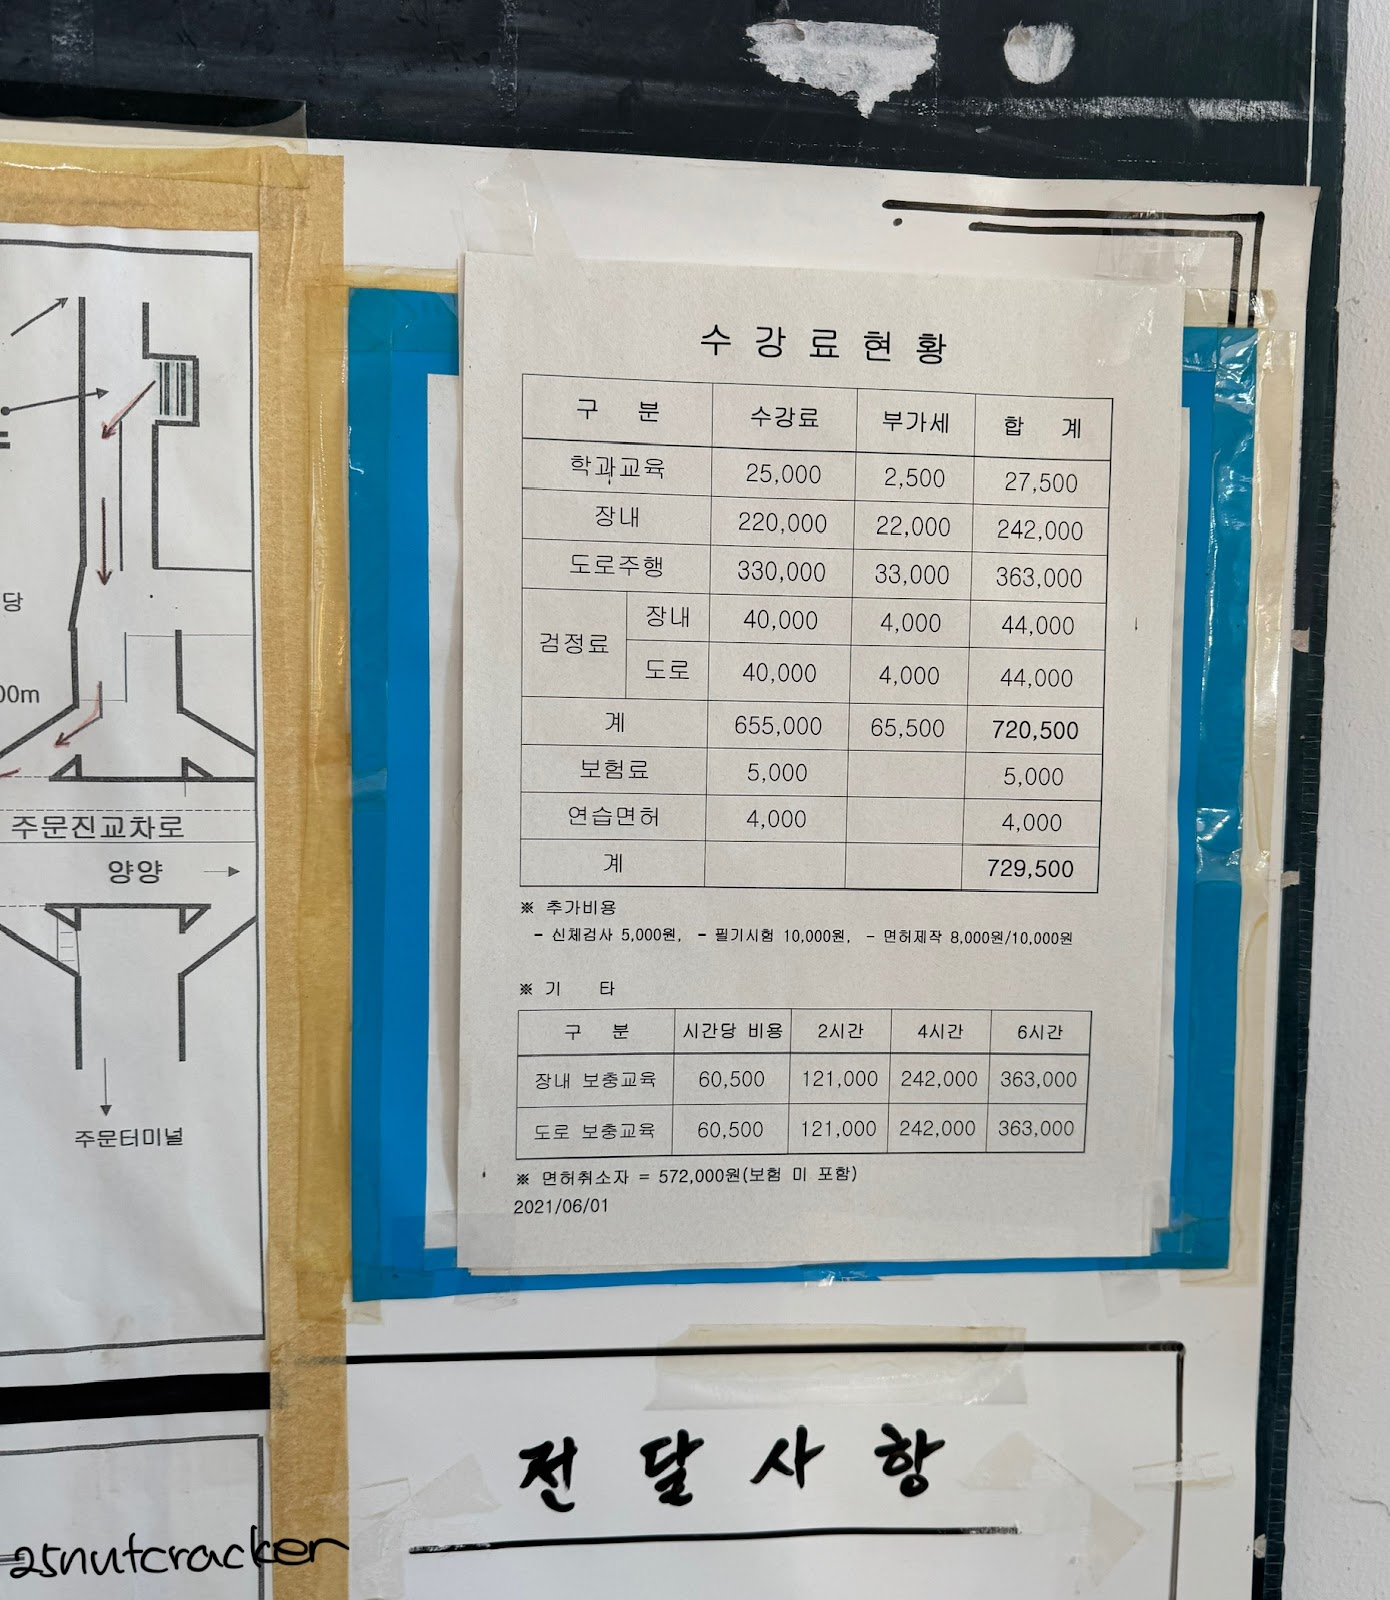 수 강 료 현 황
구 분 수강료 부가세 합 계
학과교육 25,000 2,500 27,500
장내 220,000 22,000 242,000
도로주행 330,000 33,000 363,000
검정료 장내 40,000 4,000 44,000
도로 40,000 4,000 44,000
계 655,000 65,500 720,500
보험료 5,000 5,000
연습면허 4,000 4,000
계 729,500
※ 추가비용
- 신체검사 5,000원, - 필기시험 10,000원, - 면허제작 8,000원/10,000원
※ 기 타
구 분 시간당 비용 2시간 4시간 6시간
장내 보충교육 60,500 121,000 242,000 363,000
도로 보충교육 60,500 121,000 242,000 363,000
※ 면허취소자 = 572,000원(보험 미 포함)
2021/06/01
당
00m
주문진교차로
양양
주문터미널
전 달 사 항
25nutcracker